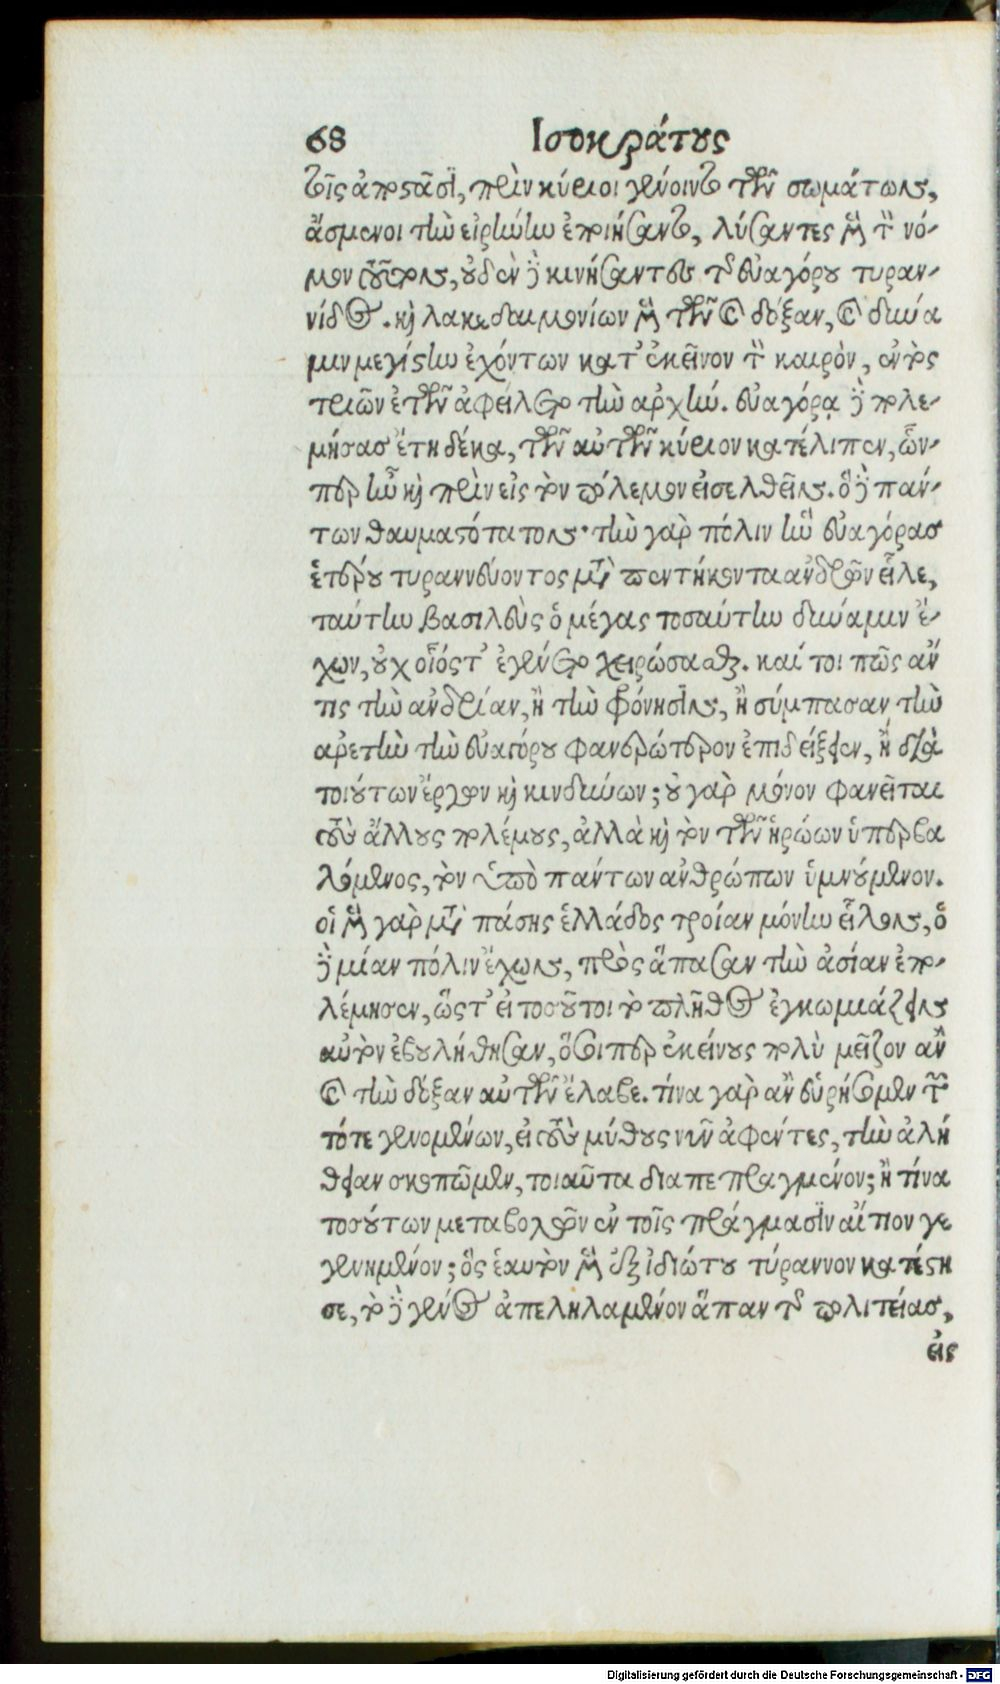 68 Ισοκράτους
τοῖς ἀποστᾶσι, πρὶν κύριοι γένοιντο τῶν σωμάτων,
ἄσμενοι τὴν εἰρήνην ἐποιήσαντο, λύσαντες μὲν τὸν νό-
μον οὓς εἶχον, οὐδὲν δὲ κινήσαντες τῆς εὐαγόρου τυραν-
νίδος. καὶ λακεδαιμονίων μὲν τῶν καὶ δόξαν, καὶ δύνα
μιν μεγίστην ἐχόντων κατ' ἐκεῖνον τὸν καιρὸν, ἐντὸς
τριῶν ἐτῶν ἀφείλετο τὴν ἀρχήν. εὐαγόρᾳ δὲ πολε-
μήσας ἔτη δέκα, τῶν αὐτῶν κύριον κατέλιπεν, ὧν-
περ ἦν καὶ πρὶν εἰς τὸν πόλεμον εἰσελθεῖν. ὃ δὲ πάν-
των θαυμασότατον· τὴν γὰρ πόλιν ἣν εὐαγόρας
ἑτέρου τυραννεύοντος μετὰ πεντήκοντα ἀνδρῶν εἷλε,
ταύτην βασιλεὺς ὁ μέγας τοσαύτην δύναμιν ἔ-
χων, οὐχ οἷός τ' ἐγένετο χειρώσασθαι. καίτοι πῶς ἄν
τις τὴν ἀνδρίαν, ἢ τὴν φρόνησιν, ἢ σύμπασαν τὴν
ἀρετὴν τὴν εὐαγόρου φανερώτερον ἐπιδείξειεν, ἢ διὰ
τοιούτων ἔργων καὶ κινδύνων; οὐ γὰρ μόνον φανεῖται
τοὺς ἄλλους πολέμους, ἀλλὰ καὶ τὸν τῶν ἡρώων ὑπερβα
λόμενος, τὸν ὑπὸ πάντων ἀνθρώπων ὑμνούμενον.
οἱ μὲν γὰρ μετὰ πάσης ἑλλάδος τροίαν μόνην εἷλον, ὁ
δὲ μίαν πόλιν ἔχων, πρὸς ἅπασαν τὴν ἀσίαν ἐπο-
λέμησεν, ὥστ' εἰ τοσοῦτοι τὸ πλῆθος ἐγκωμιάζειν
αὐτὸν ἐβουλήθησαν, ὅσοιπερ ἐκείνους πολὺ μεῖζον ἂν
καὶ τὴν δόξαν αὐτῶν ἔλαβε. τίνα γὰρ ἂν εὑρήσομεν τῶν
τότε γενομένων, εἰ τοὺς μύθους νῦν ἀφέντες, τὴν ἀλή
θειαν σκοποῦμεν, τοιαῦτα διαπεπραγμένον; ἢ τίνα
τοσούτων μεταβολῶν ἐν τοῖς πράγμασιν αἴτιον γε
γενημένον; ὃς ἑαυτὸν μὲν ἐξ ἰδιώτου τύραννον κατέστη
σε, τὸ δὲ γένος ἀπεληλαμένον ἅπαν τῆς πολιτείας,
εἰς
Digitalisierung gefördert durch die Deutsche Forschungsgemeinschaft - DFG